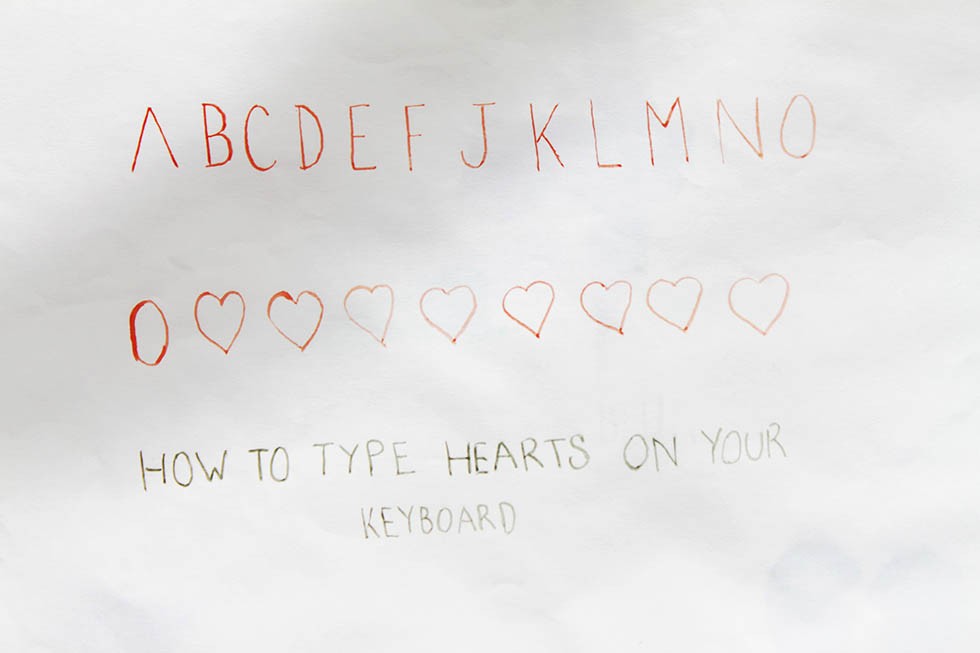 ABCDEF J KLMNO
O♡♡♡♡♡♡♡♡
HOW TO TYPE HEARTS ON YOUR
KEYBOARD